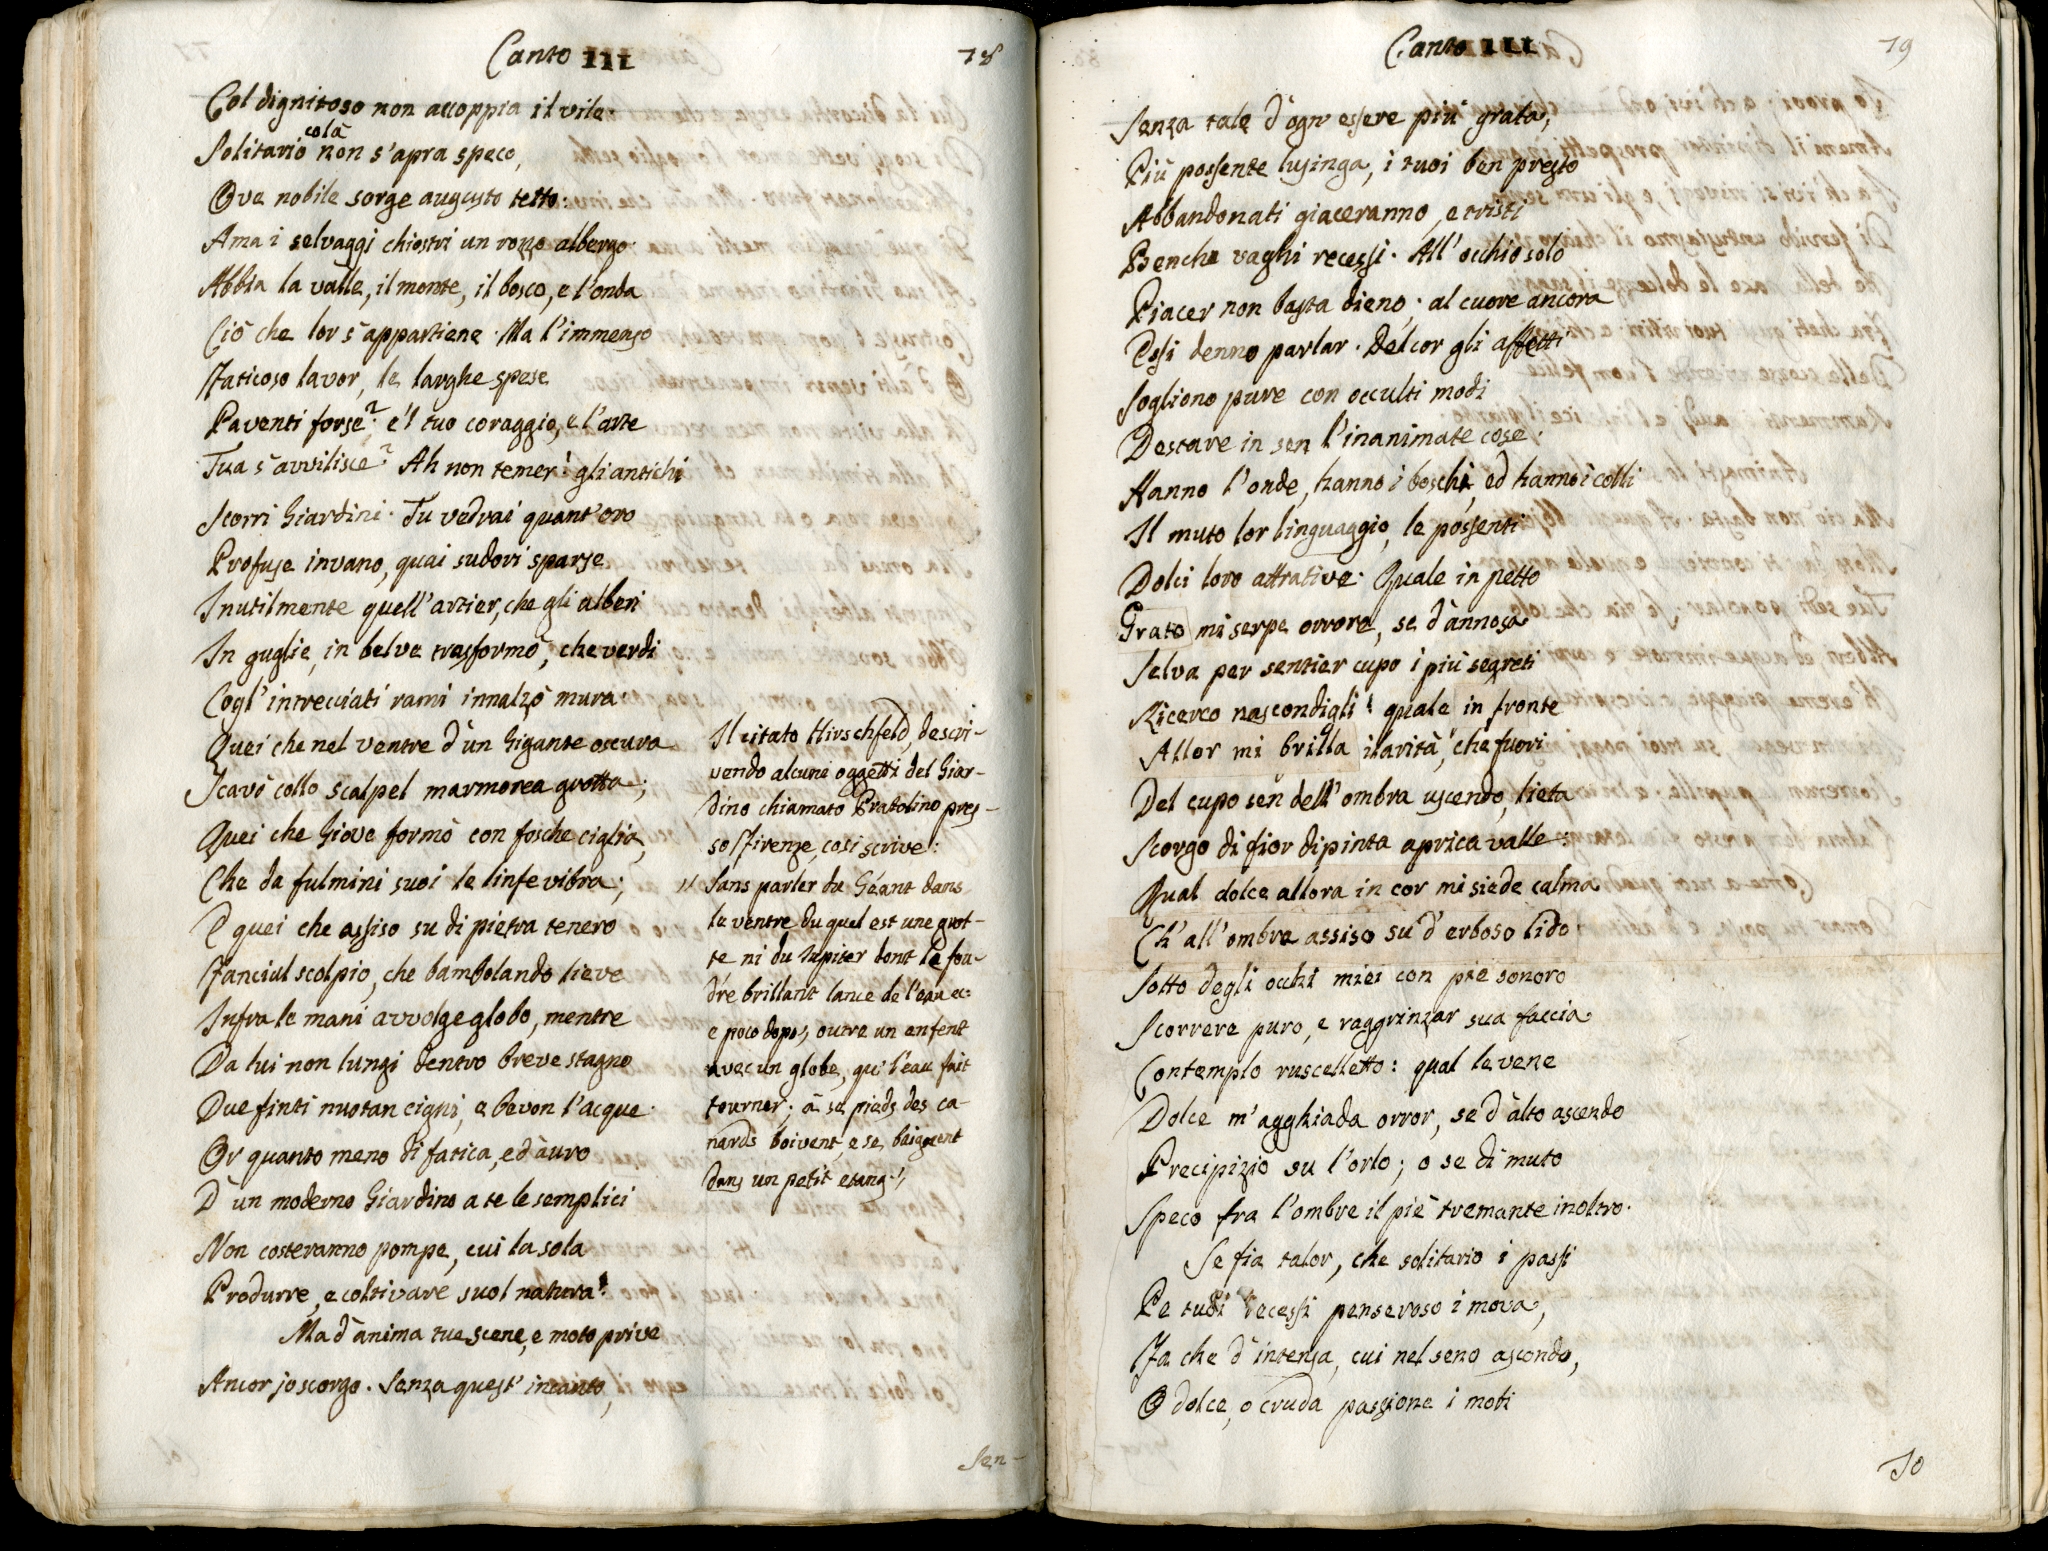 Canto III
78
Col dignitoso non accoppia il vile.
colà
Solitario non s'apra speco,
Ove nobile sorge augusto tetto:
Ama i selvaggi chiostri un rozzo albergo.
Abbia la valle, il monte, il bosco, e l'onda
Ciò che lor s'appartiene. Ma l'immenso
Faticoso lavor, le larghe spese
Paventi forse? e'l tuo coraggio, e l'arte
Tua s'avvilisce? Ah non temer! gli antichi
Scorri Giardini. Tu vedrai quant'oro
Profuse invano, quai sudori sparse
Inutilmente quell'artier, che gli alberi
In guglie, in belve trasformò, che verdi
Cogl'intrecciati rami innalzò mura.
Quei che nel ventre d'un Gigante oscura
Scavò collo scalpel marmorea grotta;
Quei che Giove formò con fosche ciglia,
Che da fulmini suoi le linfe vibra;
E quei che assiso su di pietra tenero
Fanciul scolpio, che bambolando lieve
Infra le mani avvolge globo, mentre
Da lui non lungi dentro breve stagno
Due finti nuotan cigni, e bevon l'acque.
Or quanto meno di fatica, ed auro
D'un moderno Giardino a te le semplici
Non costeranno pompe, cui la sola
Produrre, e coltivare suol natura!
Ma d'anima tue scene, e moto prive
Ancor jo scorgo. Senza quest' incanto,
Il citato Hirschfeld, descri-
vendo alcuni oggetti del Giar-
dino chiamato Pratolino pres-
so Firenze, così scrive:
" Sans parler du Géant dans
le ventre du quel est une grot-
te ni du Jupiter dont le fou-
dre brillant lance de l'eau ec:
e poco dopo, outre un enfent
avec un globe, qui l'eau fait
tourner; à se pieds des ca-
nards boivent, e se baignent
dans un petit etang."
Sen-
Canto III
79
Senza tale d'ogn' essere più grata,
Più possente lusinga, i tuoi ben presto
Abbandonati giaceranno, e tristi
Benche vaghi recessi. All' occhio solo
Piacer non basta dieno; al cuore ancora
Essi denno parlar. Del cor gli affetti
Sogliono pure con occulti modi
Destare in sen l'inanimate cose.
Hanno l'onde, hanno i boschi, ed hanno i colli
Il muto lor linguaggio, le possenti
Dolci loro attrative. Quale in petto
Grato mi serpe orrore, se d'annosa
Selva per sentier cupo i più segreti
Ricerco nascondigli! quale in fronte
Allor mi brilla ilarità, che fuori
Del cupo sen dell'ombra uscendo, lieta
Scorgo di fior dipinta aprica valle:
Qual dolce allora in cor mi siede calma
Ch' all'ombra assiso su d'erboso lido
Sotto degli occhi miei con piè sonoro
Scorrere puro, e raggrinzar sua faccia
Contemplo ruscelletto: qual le vene
Dolce m'agghiada orror, se d'alto ascendo
Precipizio su l'orlo; o se di muto
Speco fra l'ombre il piè tremante inoltro.
Se fia talor, che solitario i passi
Pe tuoi recessi penseroso i mova,
Fa che d'intensa, cui nel seno ascondo,
O dolce, o cruda passione i moti